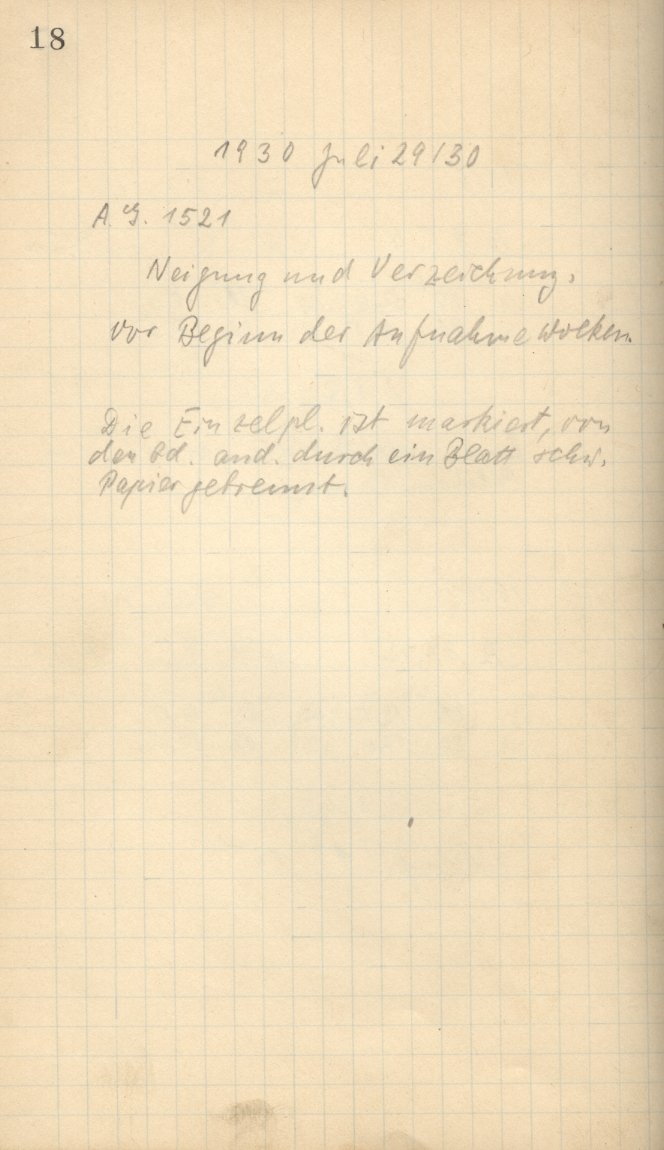 18
1930 Juli 29/30
A.G. 1521
Neigung und Verzeichnung,
vor Beginn der Aufnahme Wolken.
Die Einzelpl. ist markiert, von
den bd. and. durch ein Blatt schw.
Papier getrennt.